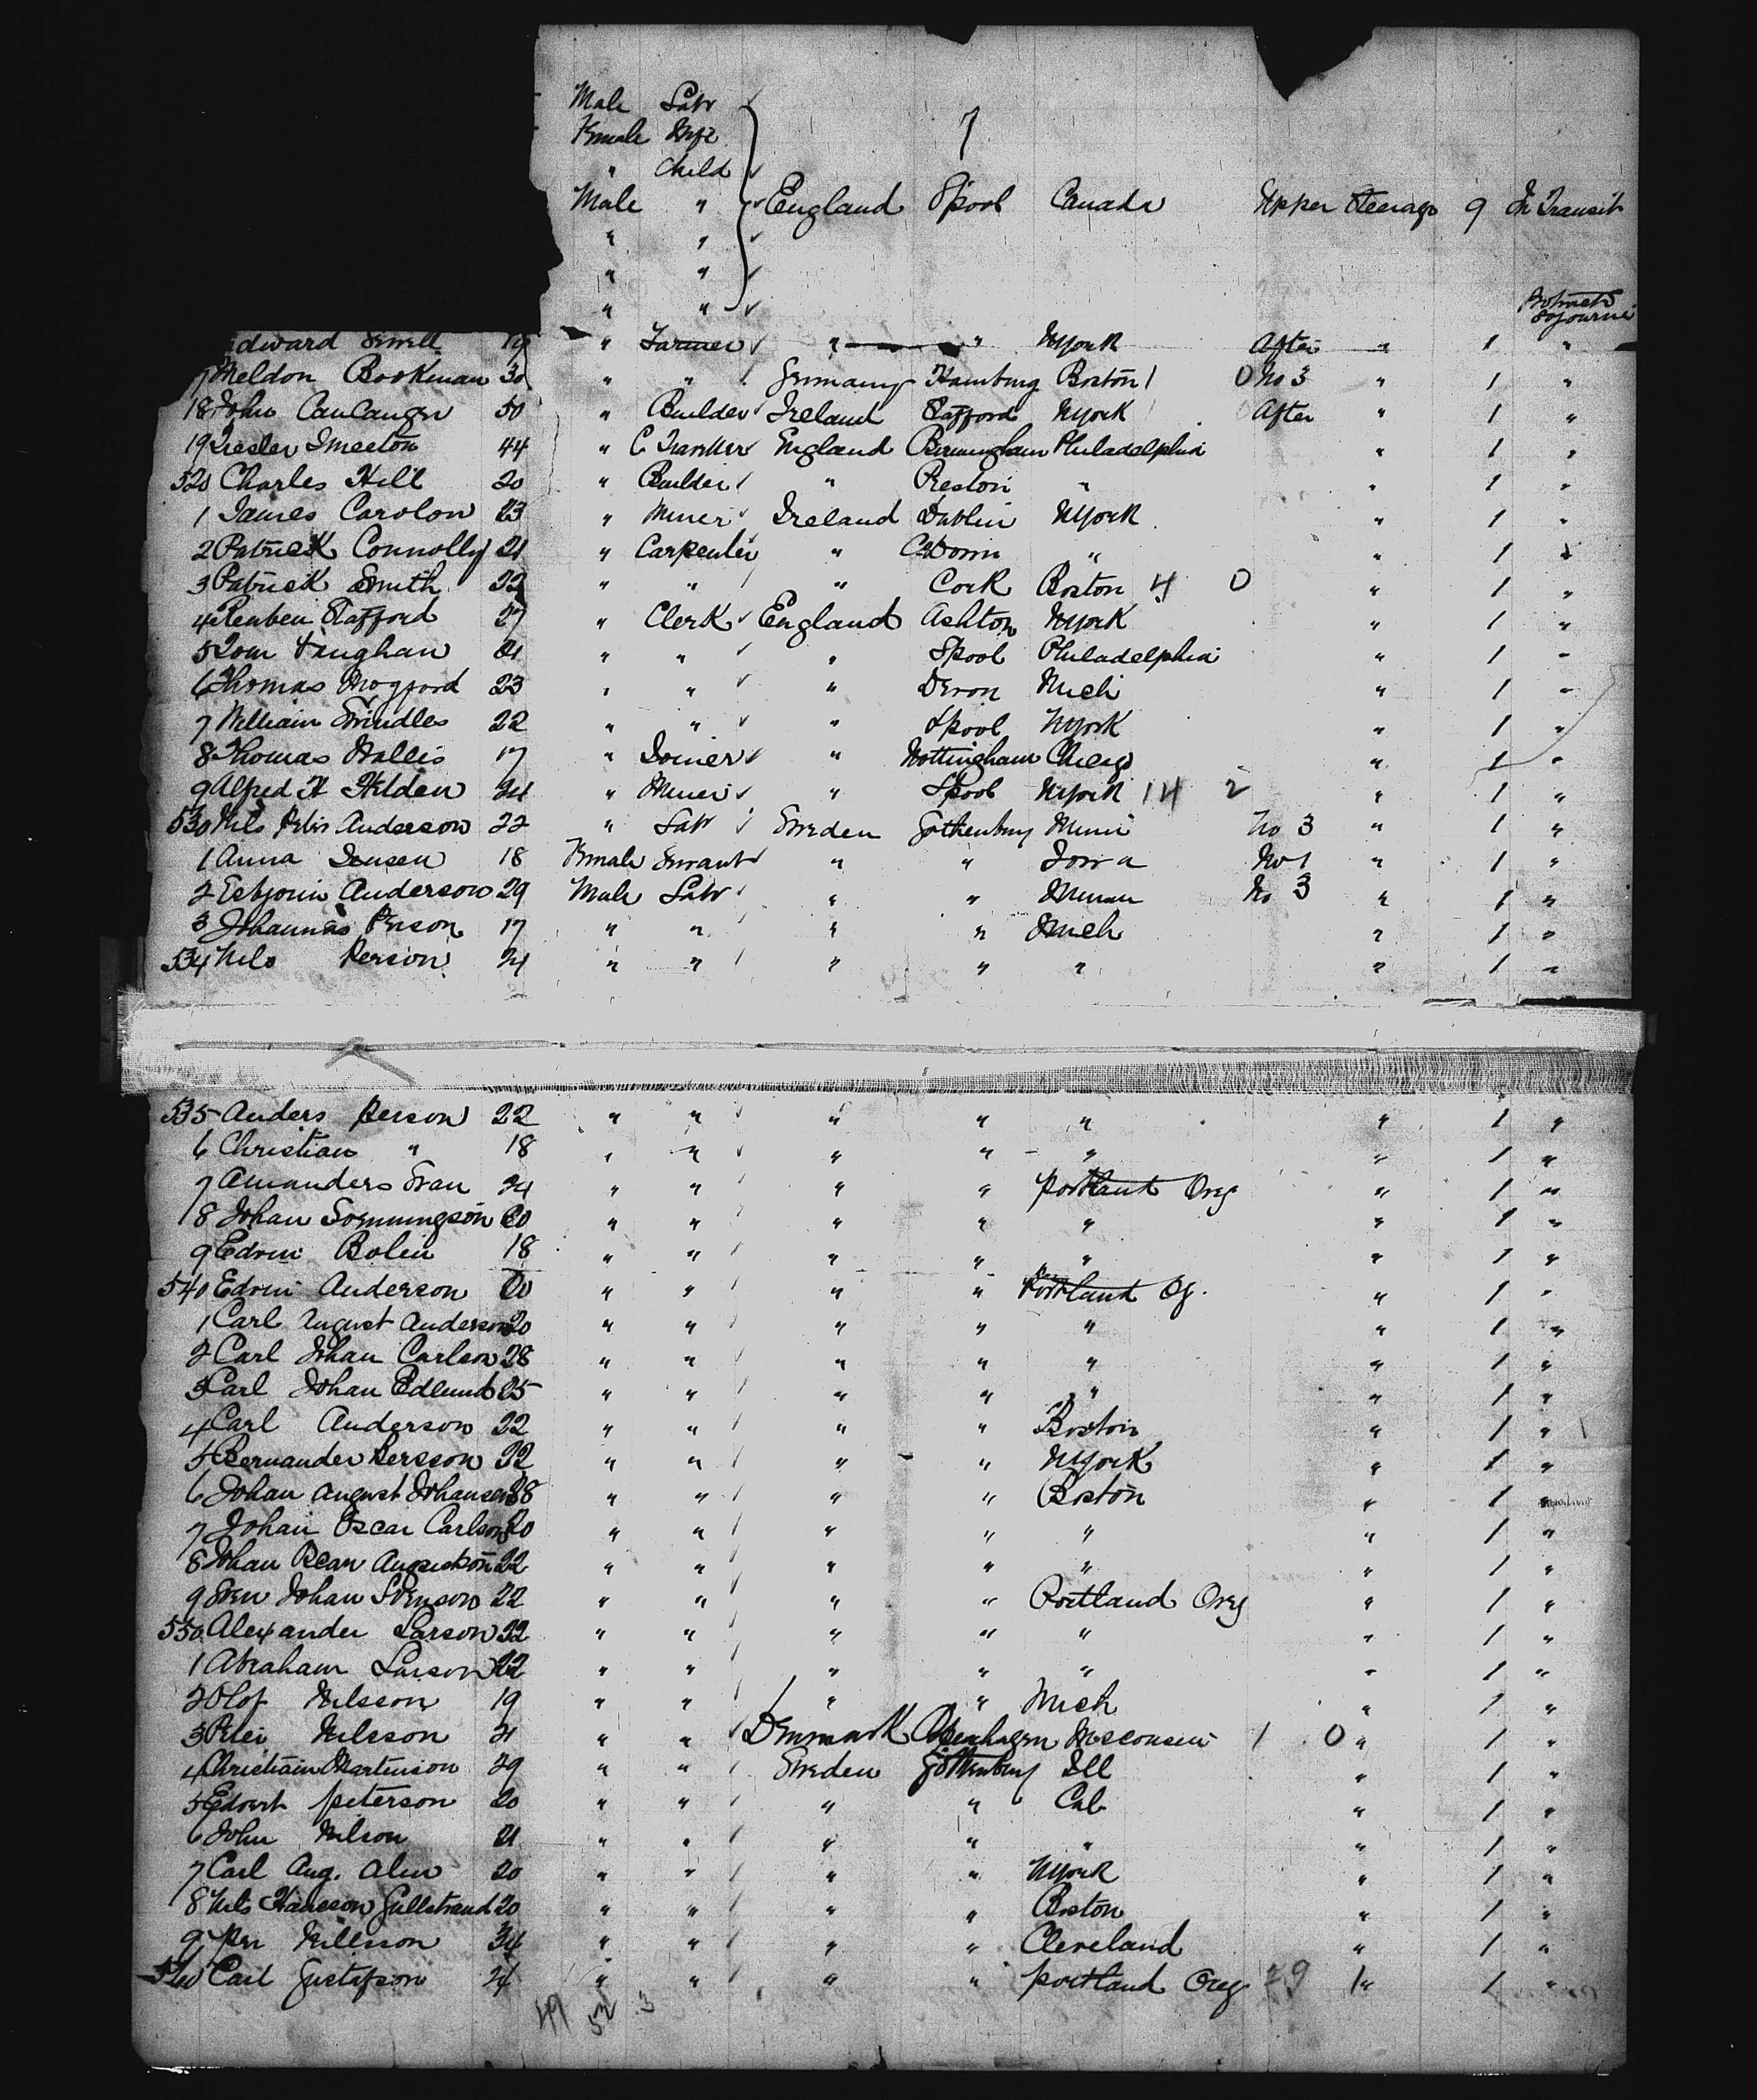 Male Labr
Female Wife
7
" Child
Male " England L'pool Canada Upper Steerage 9 In Transit
" "
" "
" "
Sojourn
dward 19 " Farmer " " NYork After " 1 "
7 Meldon Bookman 30 " " Germany Hamburg Boston 1 0 No 3 " 1 "
18 John 50 " Builder Ireland NYork After " 1 "
19 Smeeton 44 " C Traveller England Birmingham Philadelphia " 1 "
520 Charles Hill 20 " Builder " Preston " " 1 "
1 James Carolon 23 " Miner Ireland Dublin NYork " 1 "
2 Patrick Connolly 21 " Carpenter " Co Down " " 1 "
3 Patrick Smith 22 " " " Cork Boston 4 0 " 1 "
4 Reuben Stafford 27 " Clerk England Ashton NYork " 1 "
5 Tom Vaughan 21 " " " L'pool Philadelphia " 1 "
6 Thomas Mogford 23 " " " Devon Mich " 1 "
7 William Swindles 22 " " " L'pool NYork " 1 "
8 Thomas Wallis 17 " Joiner " Nottingham Chicago " 1 "
9 Alfred H Hilden 24 " Miner " L'pool NYork 14 2 " 1 "
530 Nils Peter Anderson 22 " Labr Sweden Gothenburg Minn No 3 " 1 "
1 Anna Jensen 18 Female Servant " " Iowa No 1 " 1 "
2 Esbjorn Anderson 29 Male Labr " " Minn No 3 " 1 "
3 Johannes Person 17 " " " " Mich " 1 "
534 Nils Person 24 " " " " " " 1 "
535 Anders Person 22 " " " " " " 1 "
6 Christian " 18 " " " " " " 1 "
7 Amanders Svan 24 " " " " Portland Oreg " 1 "
8 Johan 20 " " " " " " 1 "
9 Edwin Bolin 18 " " " " " " 1 "
540 Edwin Anderson 20 " " " " Portland Og. " 1 "
1 Carl August Anderson 20 " " " " " " 1 "
2 Carl Johan Carlson 28 " " " " " " 1 "
3 Carl Johan Edlund 25 " " " " " " 1 "
4 Carl Anderson 22 " " " " Boston " 1 "
5 Bernander Persson 32 " " " " NYork " 1 "
6 Johan August Johansen 28 " " " " Boston " 1 "
7 Johan Oscar Carlson 20 " " " " " " 1 "
8 Johan Oscar 22 " " " " " " 1 "
9 Sven Johan Svenson 22 " " " " Portland Oreg " 1 "
550 Alexander Larson 32 " " " " " " 1 "
1 Abraham Larson 22 " " " " " " 1 "
2 Olof Nilsson 19 " " " " Mich " 1 "
3 Peter Nilsson 21 " " Denmark Copenhagen Wisconsin 1 0 " 1 "
4 Christian Martinson 29 " " Sweden Gothenburg Ill " 1 "
5 Edvert Peterson 20 " " " " Cal " 1 "
6 John Nilson 21 " " " " " " 1 "
7 Carl Aug. Alm 20 " " " " NYork " 1 "
8 Nils Hansson Gullstrand 20 " " " " Boston " 1 "
9 Per Nillsson 34 " " " " Cleveland " 1 "
560 Carl Gustafson 24 " " " " Portland Oreg 29 1 " 1 "
49 52 3